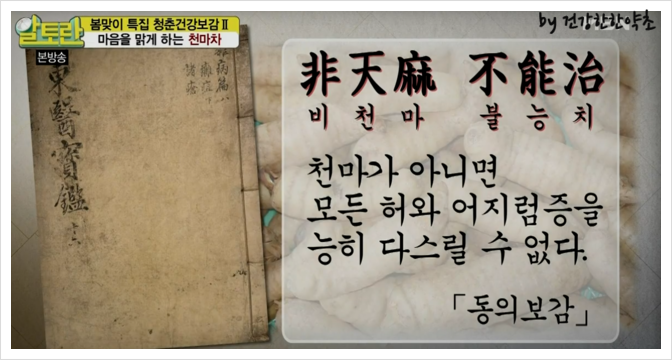 알토란
본방송
봄맞이 특집 청춘건강보감 Ⅱ
마음을 맑게 하는 천마차
by 건강한한약초
東醫寶鑑
非天麻 不能治
비천마 불능치
천마가 아니면
모든 허와 어지럼증을
능히 다스릴 수 없다.
「동의보감」